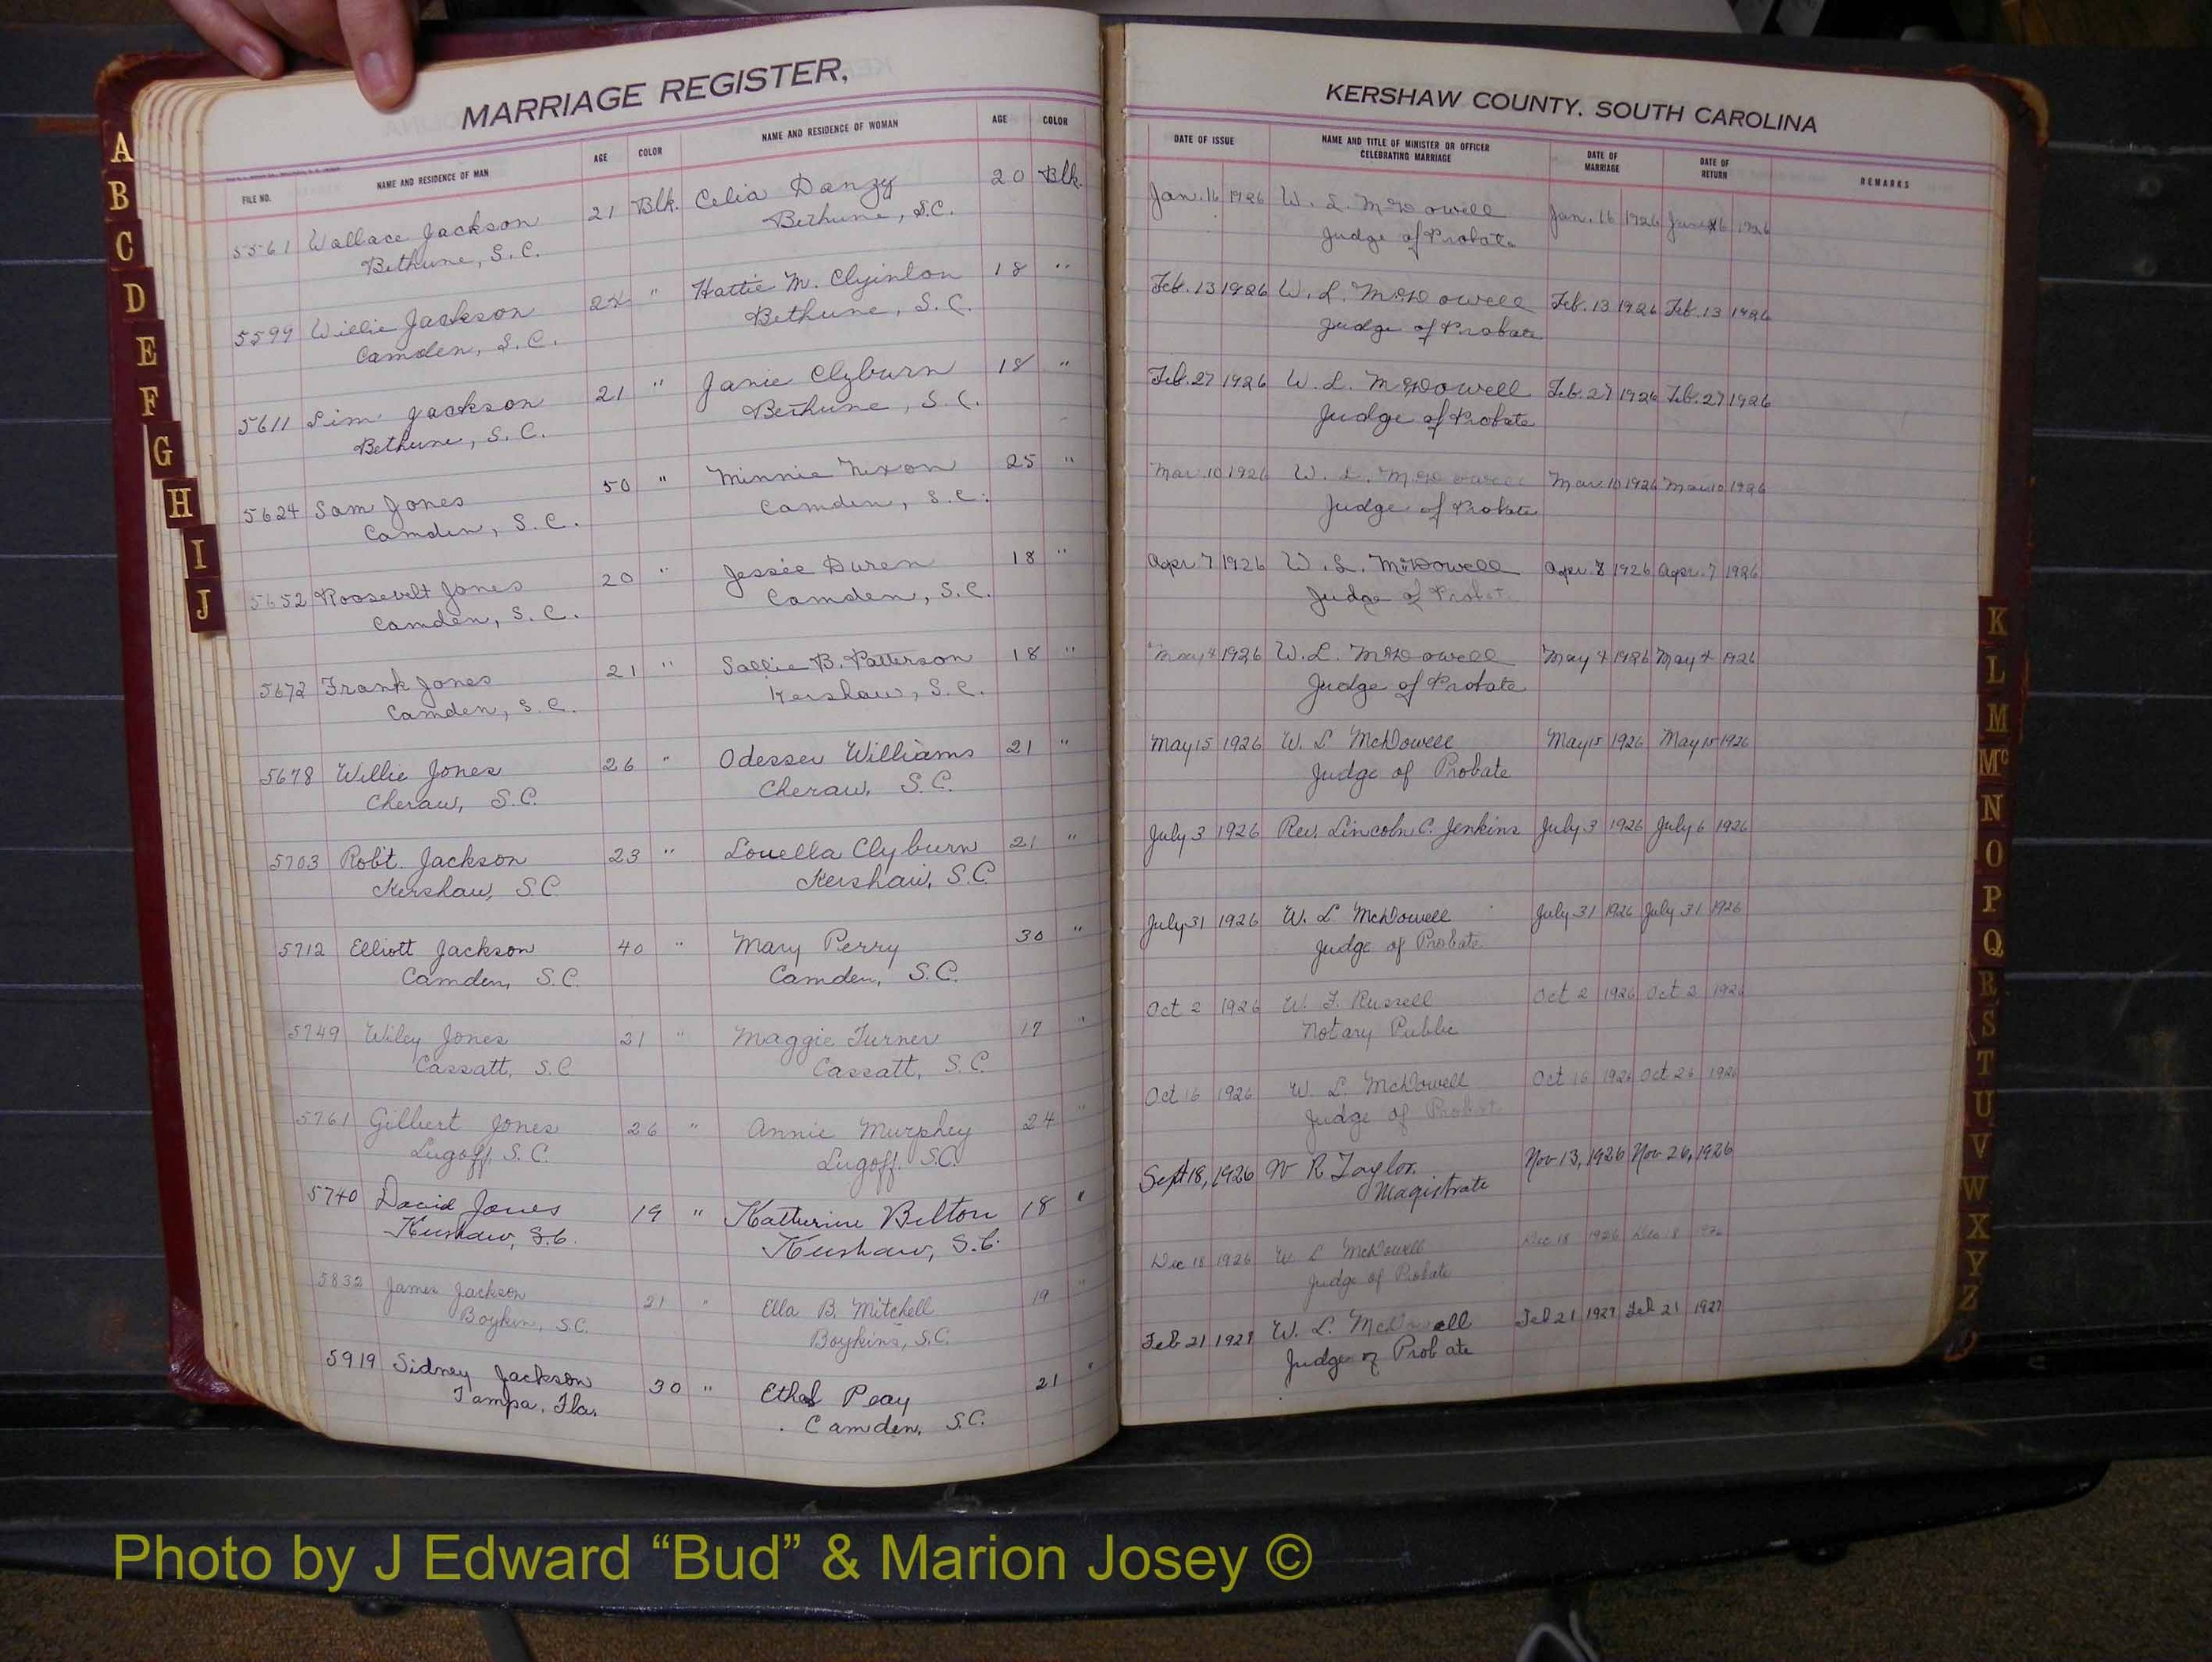 MARRIAGE REGISTER,
FILE NO. NAME AND RESIDENCE OF MAN AGE COLOR NAME AND RESIDENCE OF WOMAN AGE COLOR
5561 Wallace Jackson 21 Blk. Celia Danzy 20 Blk.
Bethune, S.C. Bethune, S.C.
5599 Willie Jackson " Hattie M. 18 "
Camden, S.C. Bethune, S.C.
5611 Jackson 21 " Janie Clyburn 18 "
Bethune, S.C. Bethune, S.C.
5624 Sam Jones 50 " Minnie Nixon 25 "
Camden, S.C. Camden, S.C.
5652 Roosevelt Jones 20 " Jessie Duren 18 "
Camden, S.C. Camden, S.C.
5672 Frank Jones 21 " Sallie B. Patterson 18 "
Camden, S.C. Kershaw, S.C.
5678 Willie Jones 26 " Odessa Williams 21 "
Cheraw, S.C. Cheraw, S.C.
5703 Rob't. Jackson 23 " Louella Clyburn 21 "
Kershaw, S.C. Kershaw, S.C.
5712 Elliott Jackson 40 " Mary Perry 30 "
Camden, S.C. Camden, S.C.
5749 Wiley Jones 21 " Maggie Turner 17 "
Cassatt, S.C. Cassatt, S.C.
5761 Gilbert Jones 26 " Annie Murphey 24 "
Lugoff, S.C. Lugoff, S.C.
5740 David Jones 19 " Katherine Belton 18 "
Kershaw, S.C. Kershaw, S.C.
5832 James Jackson 21 " Ella B. Mitchell 19 "
Boykin, S.C. Boykins, S.C.
5919 Sidney Jackson 30 " Ethel Peay 21 "
Tampa, Fla. Camden, S.C.
KERSHAW COUNTY, SOUTH CAROLINA
DATE OF ISSUE NAME AND TITLE OF MINISTER OR OFFICER CELEBRATING MARRIAGE DATE OF MARRIAGE DATE OF RETURN REMARKS
Jan. 16 1926 W. L. McDowell Jan. 16 1926 1926
Judge of Probate
Feb. 13 1926 W. L. McDowell Feb. 13 1926 Feb. 13 1926
Judge of Probate
Feb. 27 1926 W. L. McDowell Feb. 27 1926 Feb. 27 1926
Judge of Probate
Mar. 10 1926 W. L. McDowell Mar. 10 1926 Mar. 10 1926
Judge of Probate
Apr. 7 1926 W. L. McDowell Apr. 1926 Apr. 7 1926
Judge of Probate
May 4 1926 W. L. McDowell May 4 1926 May 4 1926
Judge of Probate
May 15 1926 W. L McDowell May 15 1926 May 15 1926
Judge of Probate
July 3 1926 Rev. Lincoln C. Jenkins July 3 1926 July 6 1926
July 31 1926 W. L McDowell July 31 1926 July 31 1926
Judge of Probate
Oct 2 1926 W. F. Russell Oct 2 1926 Oct 2 1926
Notary Public
Oct 16 1926 W. L. McDowell Oct 16 1926 Oct 26 1926
Judge of Probate
Sept 18, 1926 W R Taylor Nov 13, 1926 Nov 26, 1926
Magistrate
Dec 18 1926 W L McDowell Dec 18 1926 Dec 18 1926
Judge of Probate
Feb 21 1927 W. L. McDowell Feb 21 1927 Feb 21 1927
Judge of Probate
A
B
C
D
E
F
G
H
I
J
K
L
M
Mc
N
O
P
Q
R
S
T
U
V
W
X
Y
Z
Photo by J Edward “Bud” & Marion Josey ©